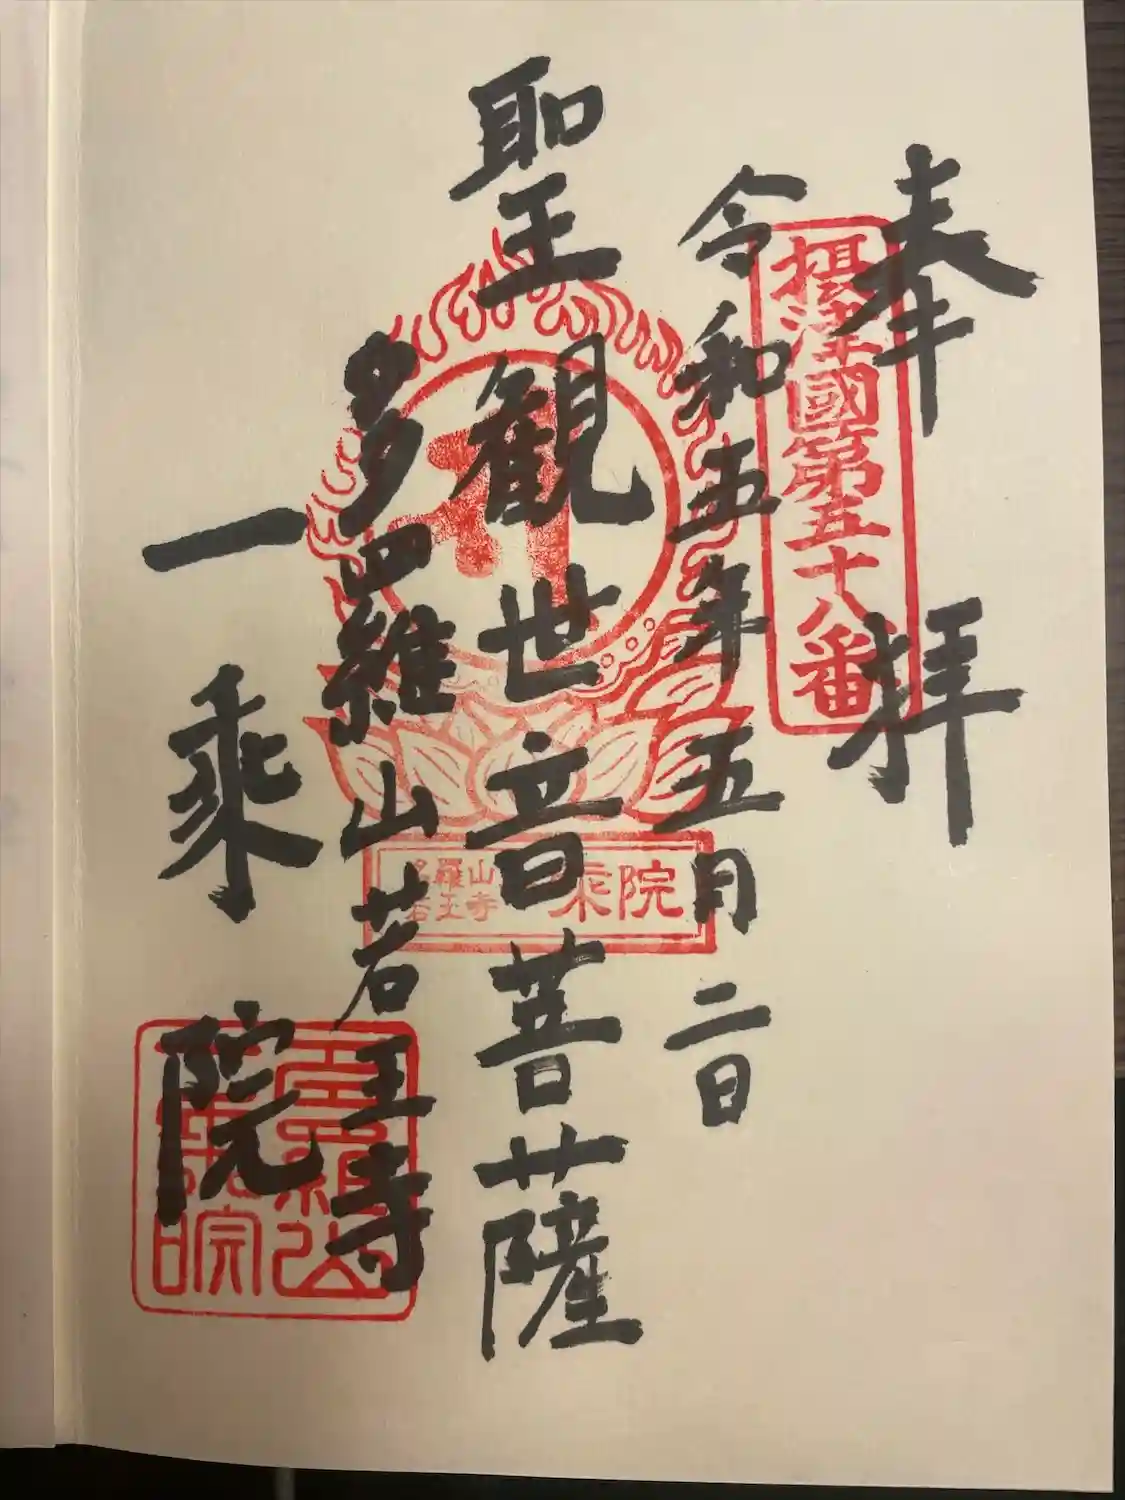 奉拝
攝津國第五十八番
令和五年五月二日
聖王観世音菩薩
多羅山若王寺
一乘院
多羅山
若王寺
乘院
多羅山
一乘院